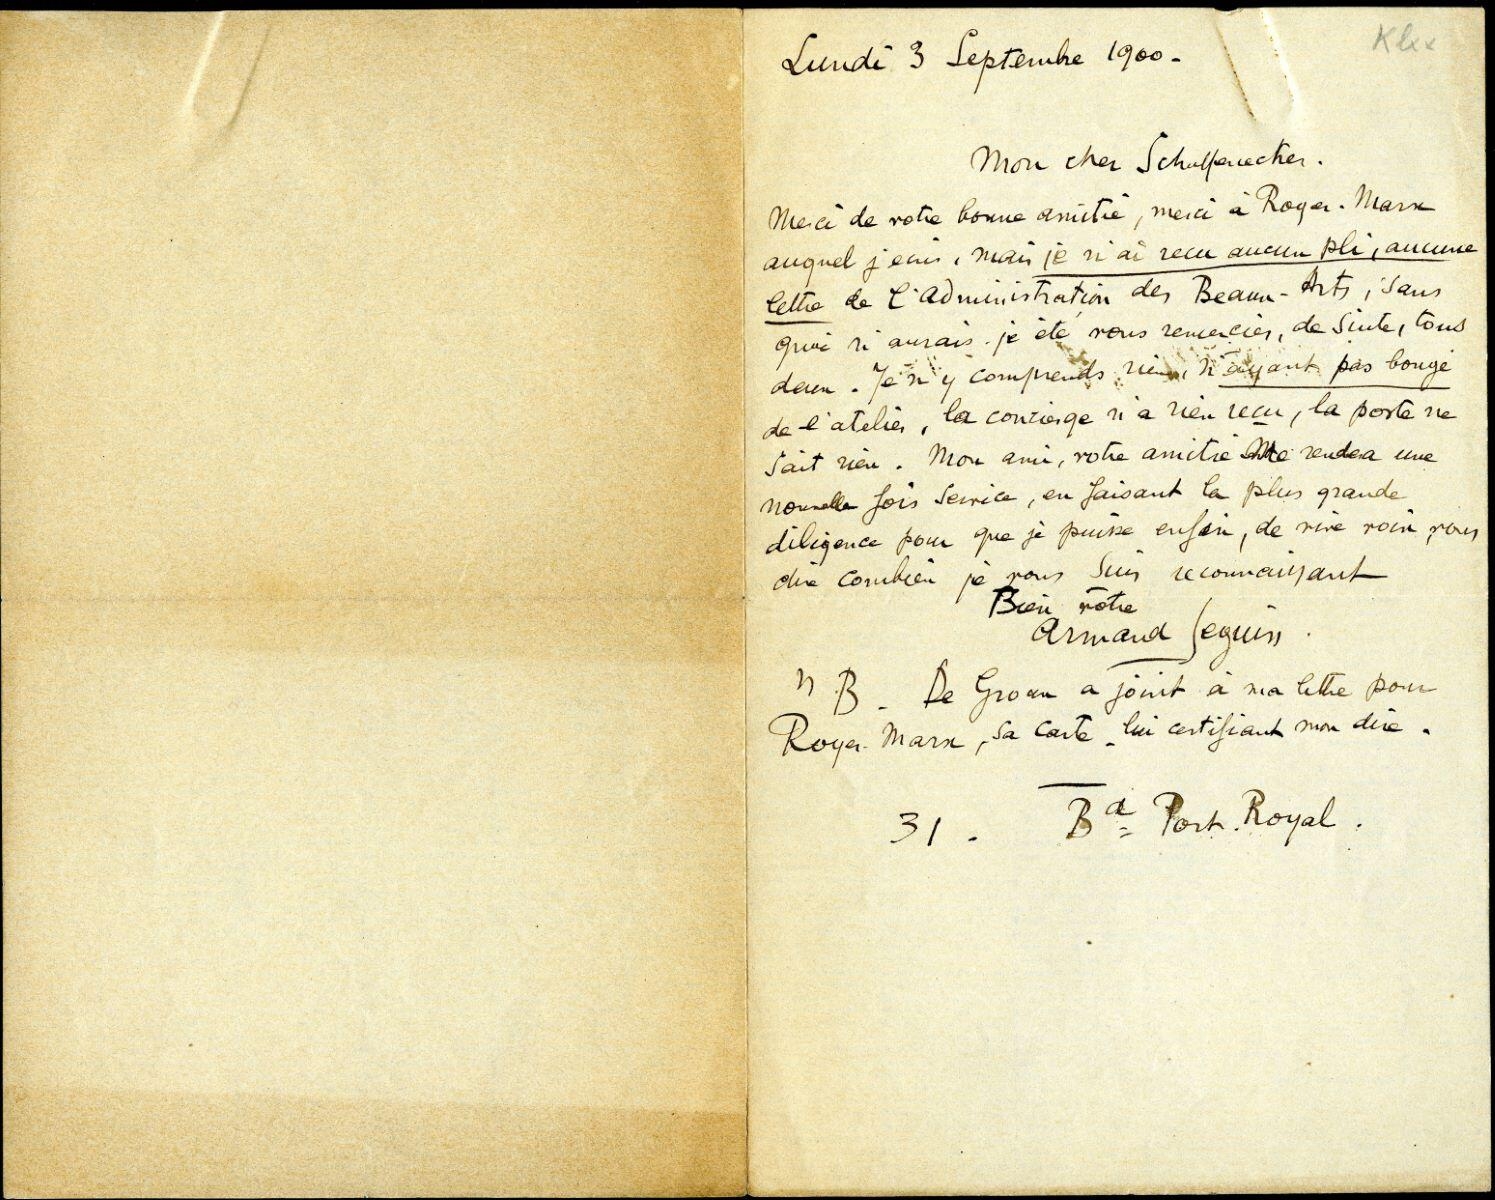 Lundi 3 Septembre 1900.
Mon cher Schuffenecker.
Merci de votre bonne amitié, merci à Roger-Marx
auquel j'écris, mais je n'ai reçu aucun pli, aucune
lettre de l'Administration des Beaux-Arts, sans
quoi n'aurais-je été vous remercier, de suite, tous
deux. Je n'y comprends rien, n'ayant pas bougé
de l'atelier, la concierge n'a rien reçu, la poste ne
sait rien. Mon ami, votre amitié me rendra une
nouvelle fois service, en faisant la plus grande
diligence pour que je puisse enfin, de vive voix, vous
dire combien je vous suis reconnaissant
Bien vôtre
Armand Seguin.
N B. De Groux a joint à ma lettre pour
Roger-Marx, sa carte lui certifiant mon dire.
31. Bd Port-Royal.